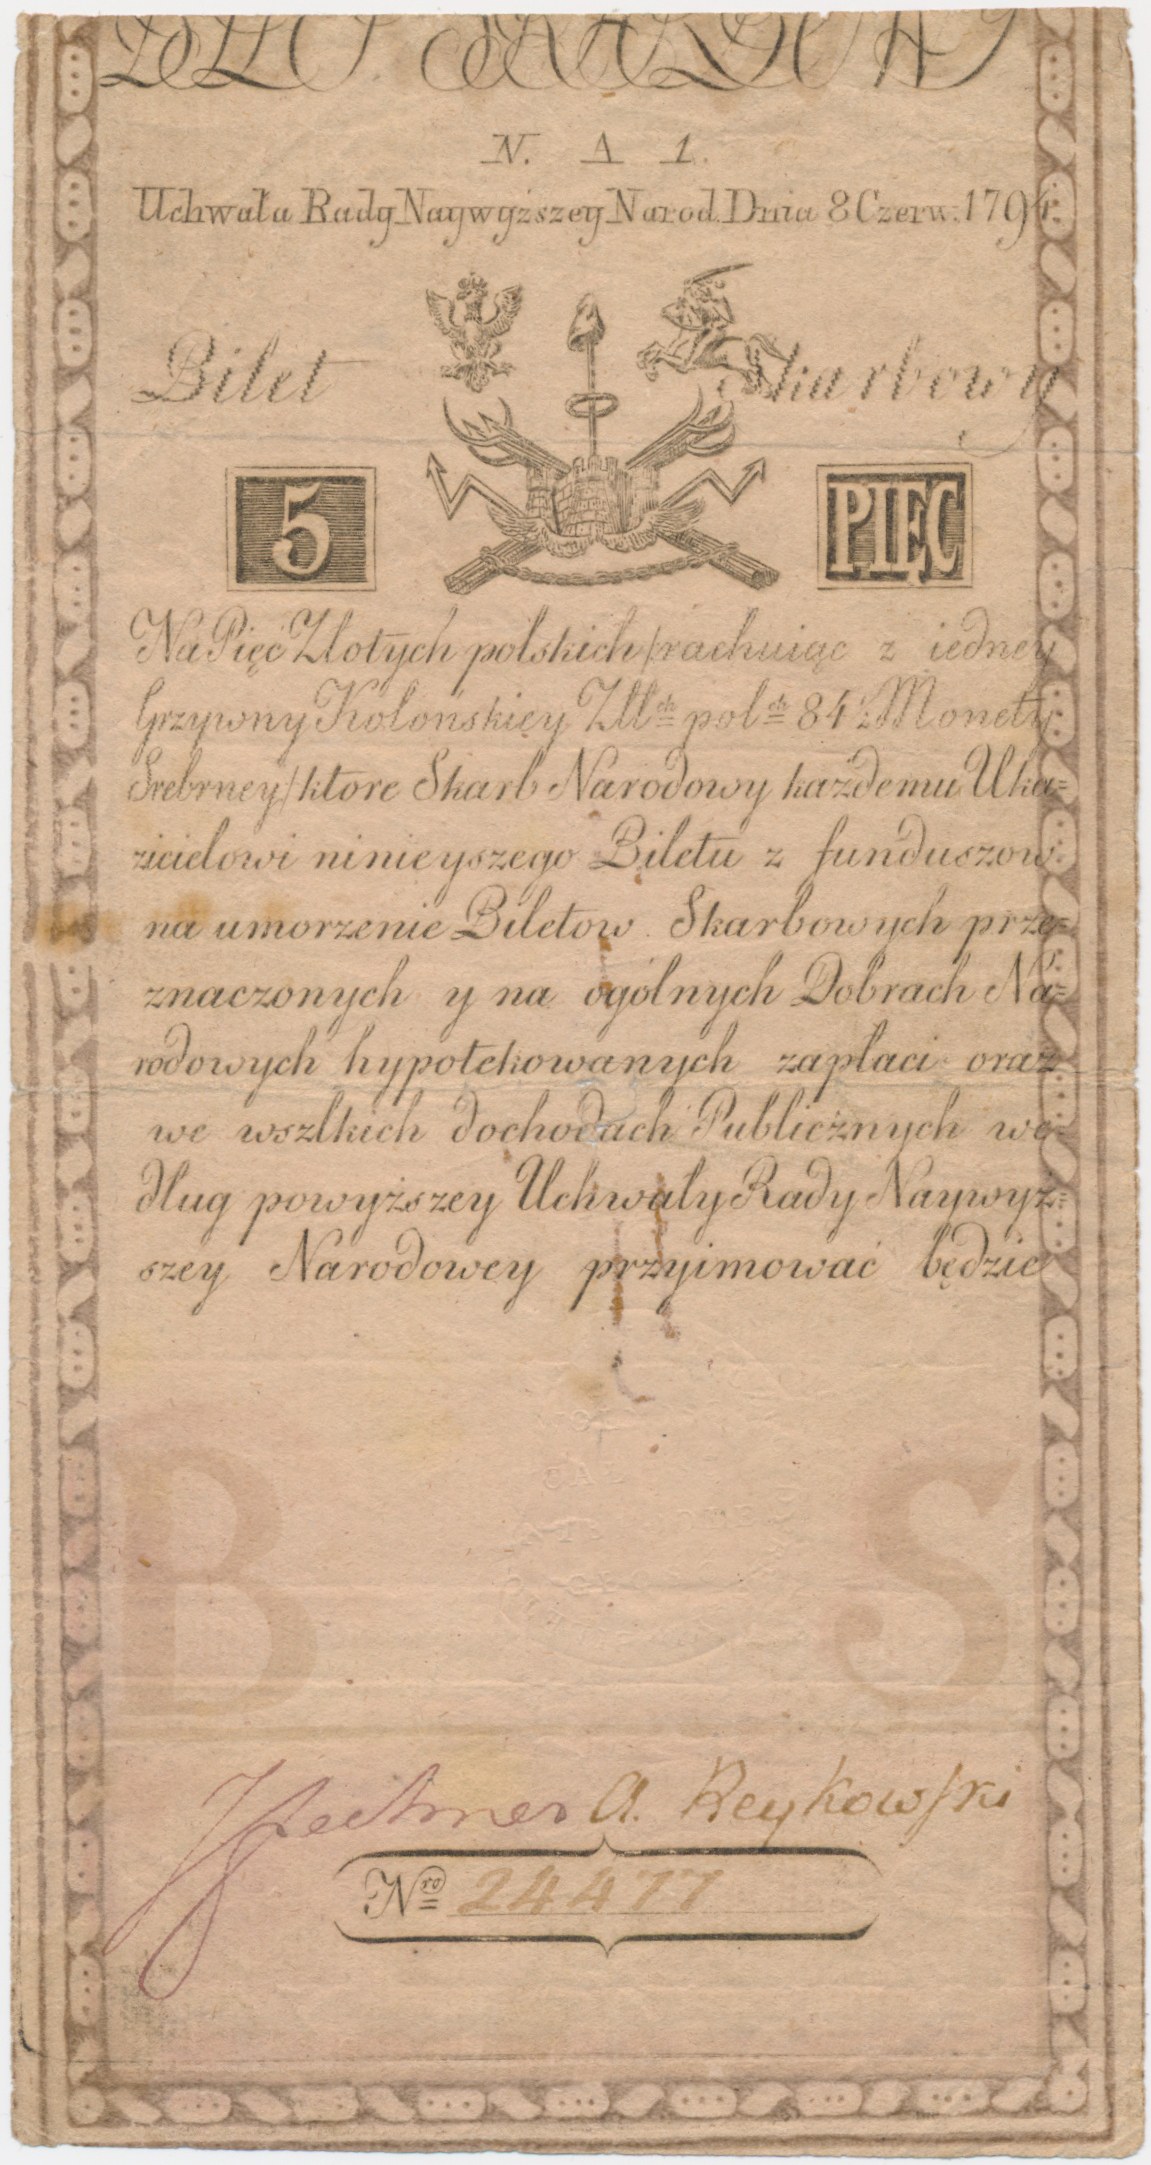 N. A 1.
Uchwała Rady Naywyższey Narod. Dnia 8 Czerw. 1794
Bilet Skarbowy
5 PIĘC
Na Pięć Złotych polskich /rachuiąc z iedney
Grzywny Kolońskiey Złłch polch 84½ Monety
Srebrney/ ktore Skarb Narodowy każdemu Uka=
zicielowi ninieyszego Biletu z funduszow
na umorzenie Biletow Skarbowych prze=
znaczonych y na ogólnych Dobrach Na=
rodowych hypotekowanych zapłaci oraz
we wszlkich dochodach Publicznych we=
dług powyższey Uchwały Rady Naywyż=
szey Narodowey przyimować będzie
B S
A. Reykowski
Nro 24477